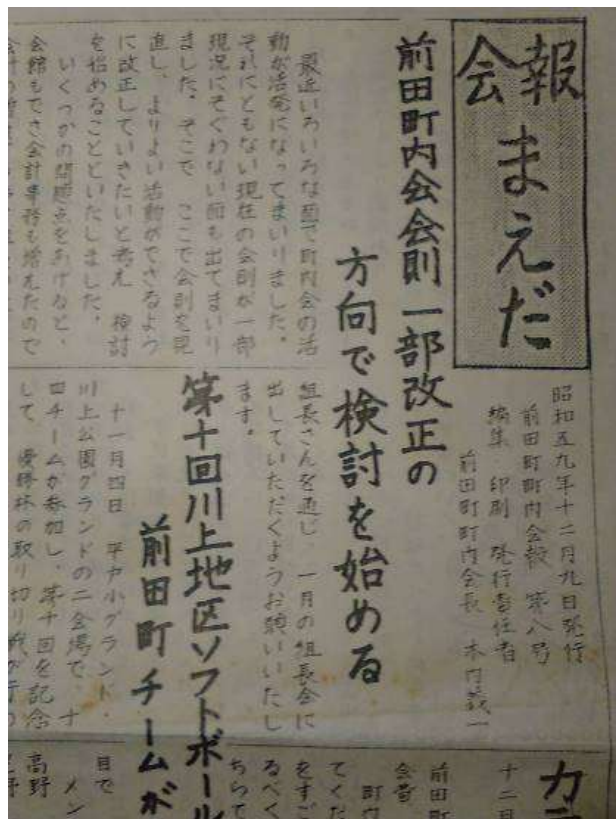 会報
まえだ
昭和五九年十二月九日発行
前田町町内会報 第八号
編集 印刷 発行責任者
前田町町内会長 木内義一
前田町内会会則一部改正の
方向で検討を始める
最近いろいろな面で町内会の活
動が活発になってまいりました。
それにともない現在の会則が一部
現況にそぐわない面も出てまいり
ました。そこで ここで会則を見
直し、よりよい活動ができるよう
に改正していきたいと考え 検討
を始めることといたしました。
いくつかの問題点をあげると、
会館もでき会計事務も増えたので
組長さんを通じ、一月の組長会に
出していただくようお願いいたし
ます。
第十回川上地区ソフトボール
前田町チームが
十一月四日 平戸小グランド・
川上公園グランドの二会場で、十
四チームが参加し、第十回を記念
して 優勝杯の取り切り戦が行わ
カラ
十二日
前田町
会費
町内
てくだ
をすご
るべく
ちらで
目で
メン
高野